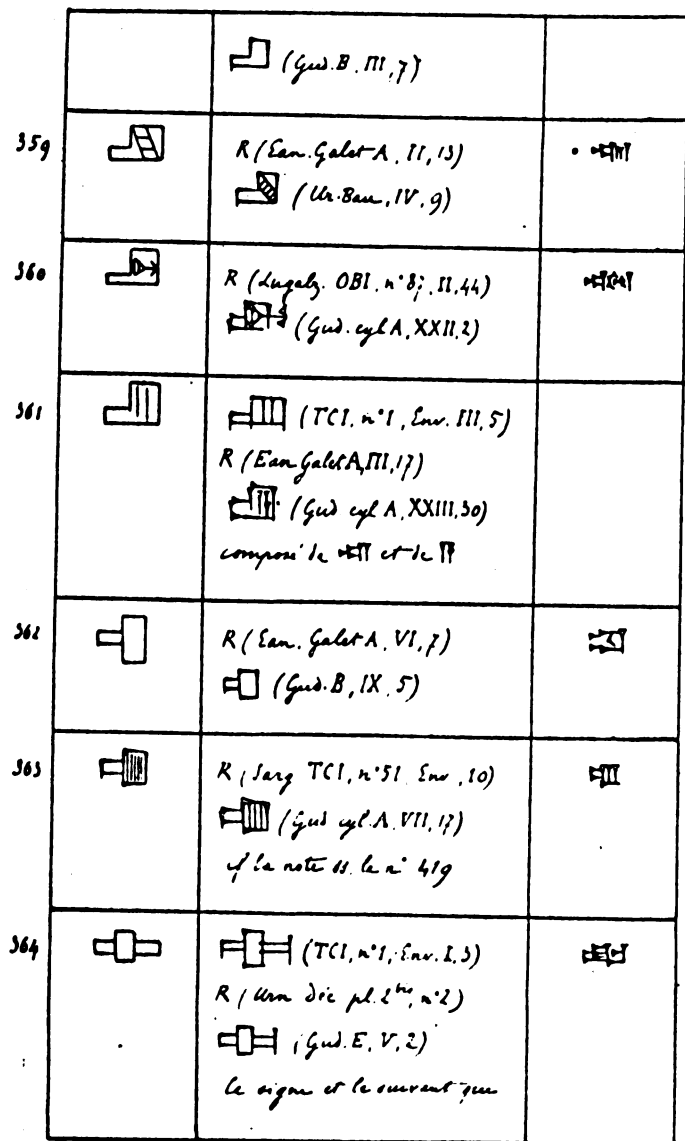 (Gud. B. III, 7)
359
R (Ean. Galet A, II, 13)
(Ur-Bau, IV, 9)
360
R (Lugalz. OBI, n° 87, II, 44)
(Gud. cyl A, XXII, 2)
361
(TCI, n°1, Env. III, 5)
R (Ean Galet A, III, 17)
(Gud cyl A, XXIII, 30)
composé de et de
362
R (Ean. Galet A, VI, 7)
(Gud. B, IX, 5)
363
R (Sarg TCI, n°51 Env, 10)
(Gud cyl. A. VII, 17)
cf la note ss. le n° 419
364
(TCI, n°1, Env. I, 3)
R (Urn déc pl. 2 bis, n°2)
(Gud. E, V, 2)
le signe et le suivant que